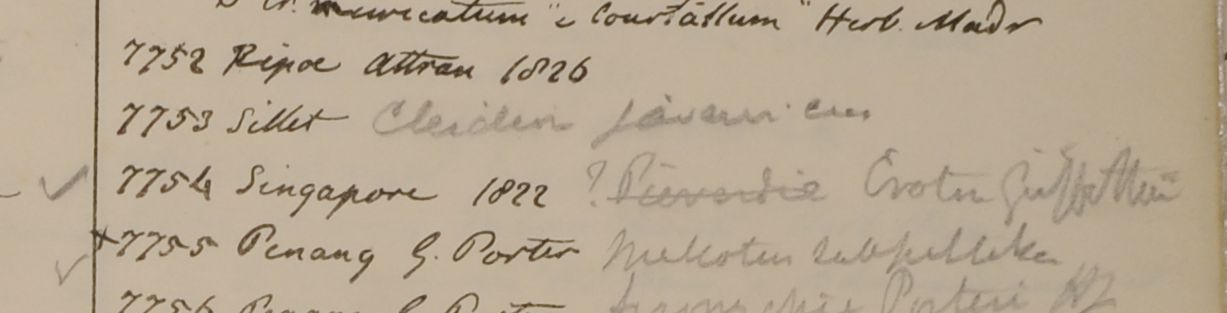 muricatum" e Courtallum" Herb. Madr
7752 Ripae Attran 1826
7753 Sillet Cleidion javanicum
7754 Singapore 1822 ? Croton Griffithii
+7755 Penang G. Porter
7756 Penang G. Porter Porteri